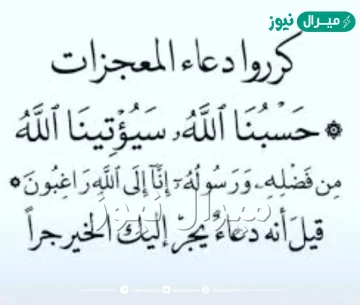 ميرال نيوز
كرروا دعاء المعجزات
۞ حَسْبُنَا ٱللَّهُ سَيُؤْتِينَا ٱللَّهُ
مِن فَضْلِهِۦ وَرَسُولُهُۥٓ إِنَّآ إِلَى ٱللَّهِ رَاغِبُونَ ۞
قيل أنه دعاءٌ يجرّ إليك الخير جراً
ميرال نيوز